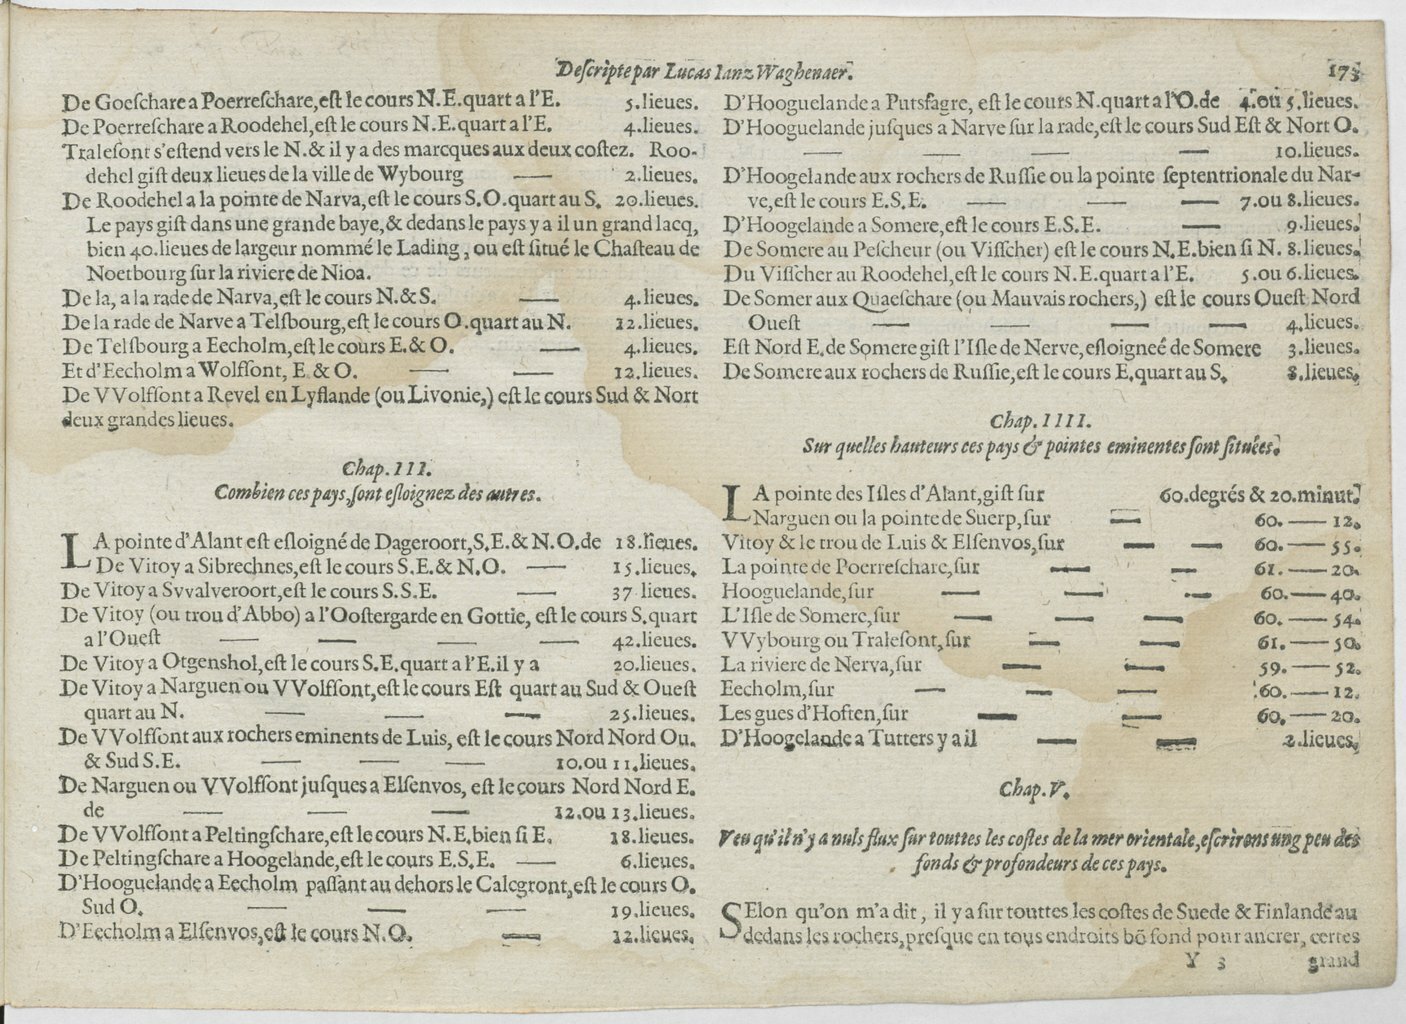 Descripte par Lucas Ianz Waghenaer.
173
De Goeschare a Poerreschare, est le cours N.E.quart a l'E. 5.lieues.
De Poerreschare a Roodehel, est le cours N.E.quart a l'E. 4.lieues.
Tralesont s'estend vers le N.& il y a des marcques aux deux costez. Roo-
dehel gist deux lieues de la ville de Wybourg —— 2.lieues.
De Roodehel a la pointe de Narva, est le cours S.O.quart au S. 20.lieues.
Le pays gist dans une grande baye, & dedans le pays y a il un grand lacq,
bien 40.lieues de largeur nommé le Lading, ou est situé le Chasteau de
Noetbourg sur la riviere de Nioa.
De la, a la rade de Narva, est le cours N.& S. —— 4.lieues.
De la rade de Narve a Telsbourg, est le cours O.quart au N. 12.lieues.
De Telsbourg a Eecholm, est le cours E.& O. —— 4.lieues.
Et d'Eecholm a Wolfsont, E & O. —— —— 12.lieues.
De VVolfsont a Revel en Lyflande (ou Livonie,) est le cours Sud & Nort
deux grandes lieues.
Chap. III.
Combien ces pays, sont esloignez des autres.
LA pointe d'Alant est esloigné de Dageroort, S.E.& N.O.de 18.lieues.
De Vitoy a Sibrechnes, est le cours S.E.& N.O. —— 15.lieues.
De Vitoy a Svvalveroort, est le cours S.S.E. —— 37 lieues.
De Vitoy (ou trou d'Abbo) a l'Oostergarde en Gottie, est le cours S.quart
a l'Ouest —— —— —— —— 42.lieues.
De Vitoy a Otgenshol, est le cours S.E.quart a l'E.il y a 20.lieues.
De Vitoy a Narguen ou VVolfsont, est le cours Est quart au Sud & Ouest
quart au N. —— —— —— 25.lieues.
De VVolfsont aux rochers eminents de Luis, est le cours Nord Nord Ou.
& Sud S.E. —— —— —— 10.ou 11.lieues.
De Narguen ou VVolfsont jusques a Elsenvos, est le cours Nord Nord E.
de —— —— —— 12.ou 13.lieues.
De VVolfsont a Peltingschare, est le cours N.E.bien si E. 18.lieues.
De Peltingschare a Hoogelande, est le cours E.S.E. —— 6.lieues.
D'Hooguelande a Eecholm passant au dehors le Calcgront, est le cours O.
Sud O. —— —— —— 19.lieues.
D'Eecholm a Elsenvos, est le cours N.O. —— 12.lieues.
D'Hooguelande a Putsfagre, est le cours N.quart a l'O.de 4.ou 5.lieues.
D'Hooguelande jusques a Narve sur la rade, est le cours Sud Est & Nort O.
—— —— —— —— 10.lieues.
D'Hoogelande aux rochers de Russie ou la pointe septentrionale du Nar-
ve, est le cours E.S.E. —— —— —— 7.ou 8.lieues.
D'Hoogelande a Somere, est le cours E.S.E. —— 9.lieues.
De Somere au Pescheur (ou Visscher) est le cours N.E.bien si N. 8.lieues.
Du Visscher au Roodehel, est le cours N.E.quart a l'E. 5.ou 6.lieues.
De Somer aux Quaeschare (ou Mauvais rochers,) est le cours Ouest Nord
Ouest —— —— —— —— 4.lieues.
Est Nord E.de Somere gist l'Isle de Nerve, esloigneé de Somere 3.lieues.
De Somere aux rochers de Russie, est le cours E.quart au S. 8.lieues.
Chap. IIII.
Sur quelles hauteurs ces pays & pointes eminentes sont situées.
LA pointe des Isles d'Alant, gist sur 60.degrés & 20.minut.
Narguen ou la pointe de Suerp, sur —— 60.——12.
Vitoy & le trou de Luis & Elsenvos, sur —— —— 60.——55.
La pointe de Poerreschare, sur —— —— 61.——20.
Hooguelande, sur —— —— —— 60.——40.
L'Isle de Somere, sur —— —— —— 60.——54.
VVybourg ou Tralesont, sur —— —— 61.——50.
La riviere de Nerva, sur —— —— 59.——52.
Eecholm, sur —— —— —— 60.——12.
Les gues d'Hoften, sur —— —— 60.——20.
D'Hoogelande a Tutters y a il —— —— 2.lieues.
Chap. V.
Veu qu'il n'y a nuls flux sur touttes les costes de la mer orientale, escrirons ung peu des
fonds & profondeurs de ces pays.
SElon qu'on m'a dit, il y a sur touttes les costes de Suede & Finlande au
dedans les rochers, presque en tous endroits bõ fond pour ancrer, certes
Y 3
grand